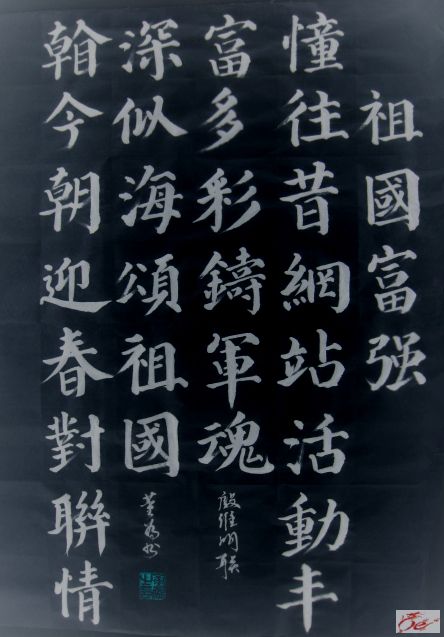 祖國富强
憧往昔網站活動丰
富多彩鑄軍魂
殷维明联
翰今朝迎春對聯情
深似海頌祖國